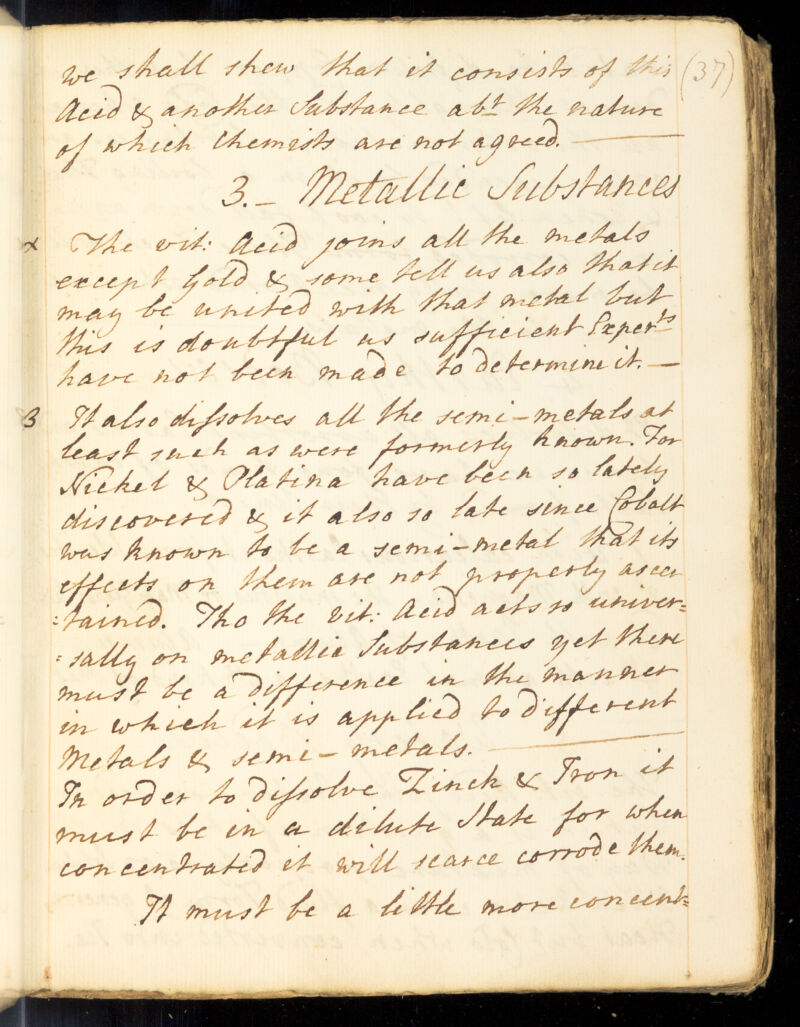 (37)
we shall shew that it consists of this
Acid & another Substance abt the nature
of which Chemists are not agreed. —
3. – Metallic Substances
x The vit: Acid joins all the metals
except Gold & some tell us also that it
may be united with that metal but
this is doubtful as sufficient Experts
have not been made to determine it. —
3 It also dissolves all the semi-metals at
least such as were formerly known. For
Nickel & Platina have been so lately
discovered & it also so late since Cobalt
was known to be a semi-metal that its
effects on them are not properly ascer
=tained. Tho the vit: Acid acts so univer=
=sally on metallic Substances yet there
must be a difference in the manner
in which it is applied to different
Metals & semi-metals. —
In order to dissolve Zinck & Iron it
must be in a dilute State for when
concentrated it will scarce corrode them.
It must be a little more concent=